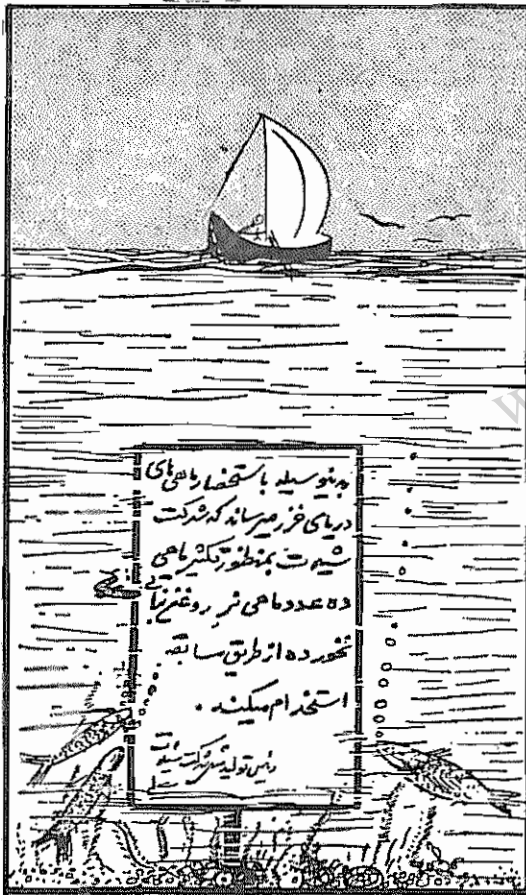 بدینوسیله باستحضار ماهی های
دریای خزر میرساند که شرکت
شیلات بمنظور تکثیر ماهی
ده عدد ماهی نر روغن نباتی
نخورده از طریق مسابقه
استخدام میکند.
رئیس تولید شرکت شیلات